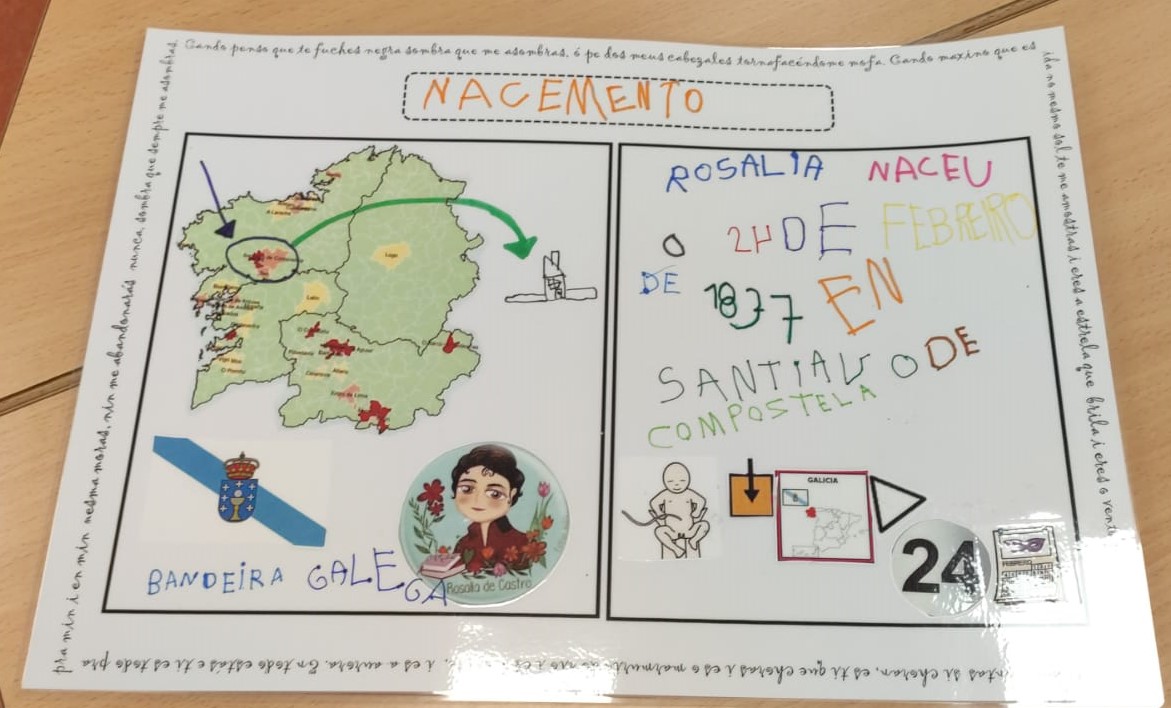 Cando penso que te fuches negra sombra que me asombras, ó pe dos meus cabezales tornafacéndome mofa. Cando maxino que es
ida no mesmo sol te me amostras i eres a estrela que brila i eres o vent
NACEMENTO
Lugo
Lalín
BANDEIRA GALEGA
Rosalía de Castro
ROSALÍA NACEU
O 24 DE FEBREIRO
DE 1837 EN
SANTIAGO DE
COMPOSTELA
GALICIA
24
FEBRERO
ntas si choran, es ti que choras i es o marmurio do río i es a noite, i es a aurora. En todo estás e ti es todo pra
pra min i en min mesma moras, nin me abandonarás nunca, sombra que sempre me asombras.